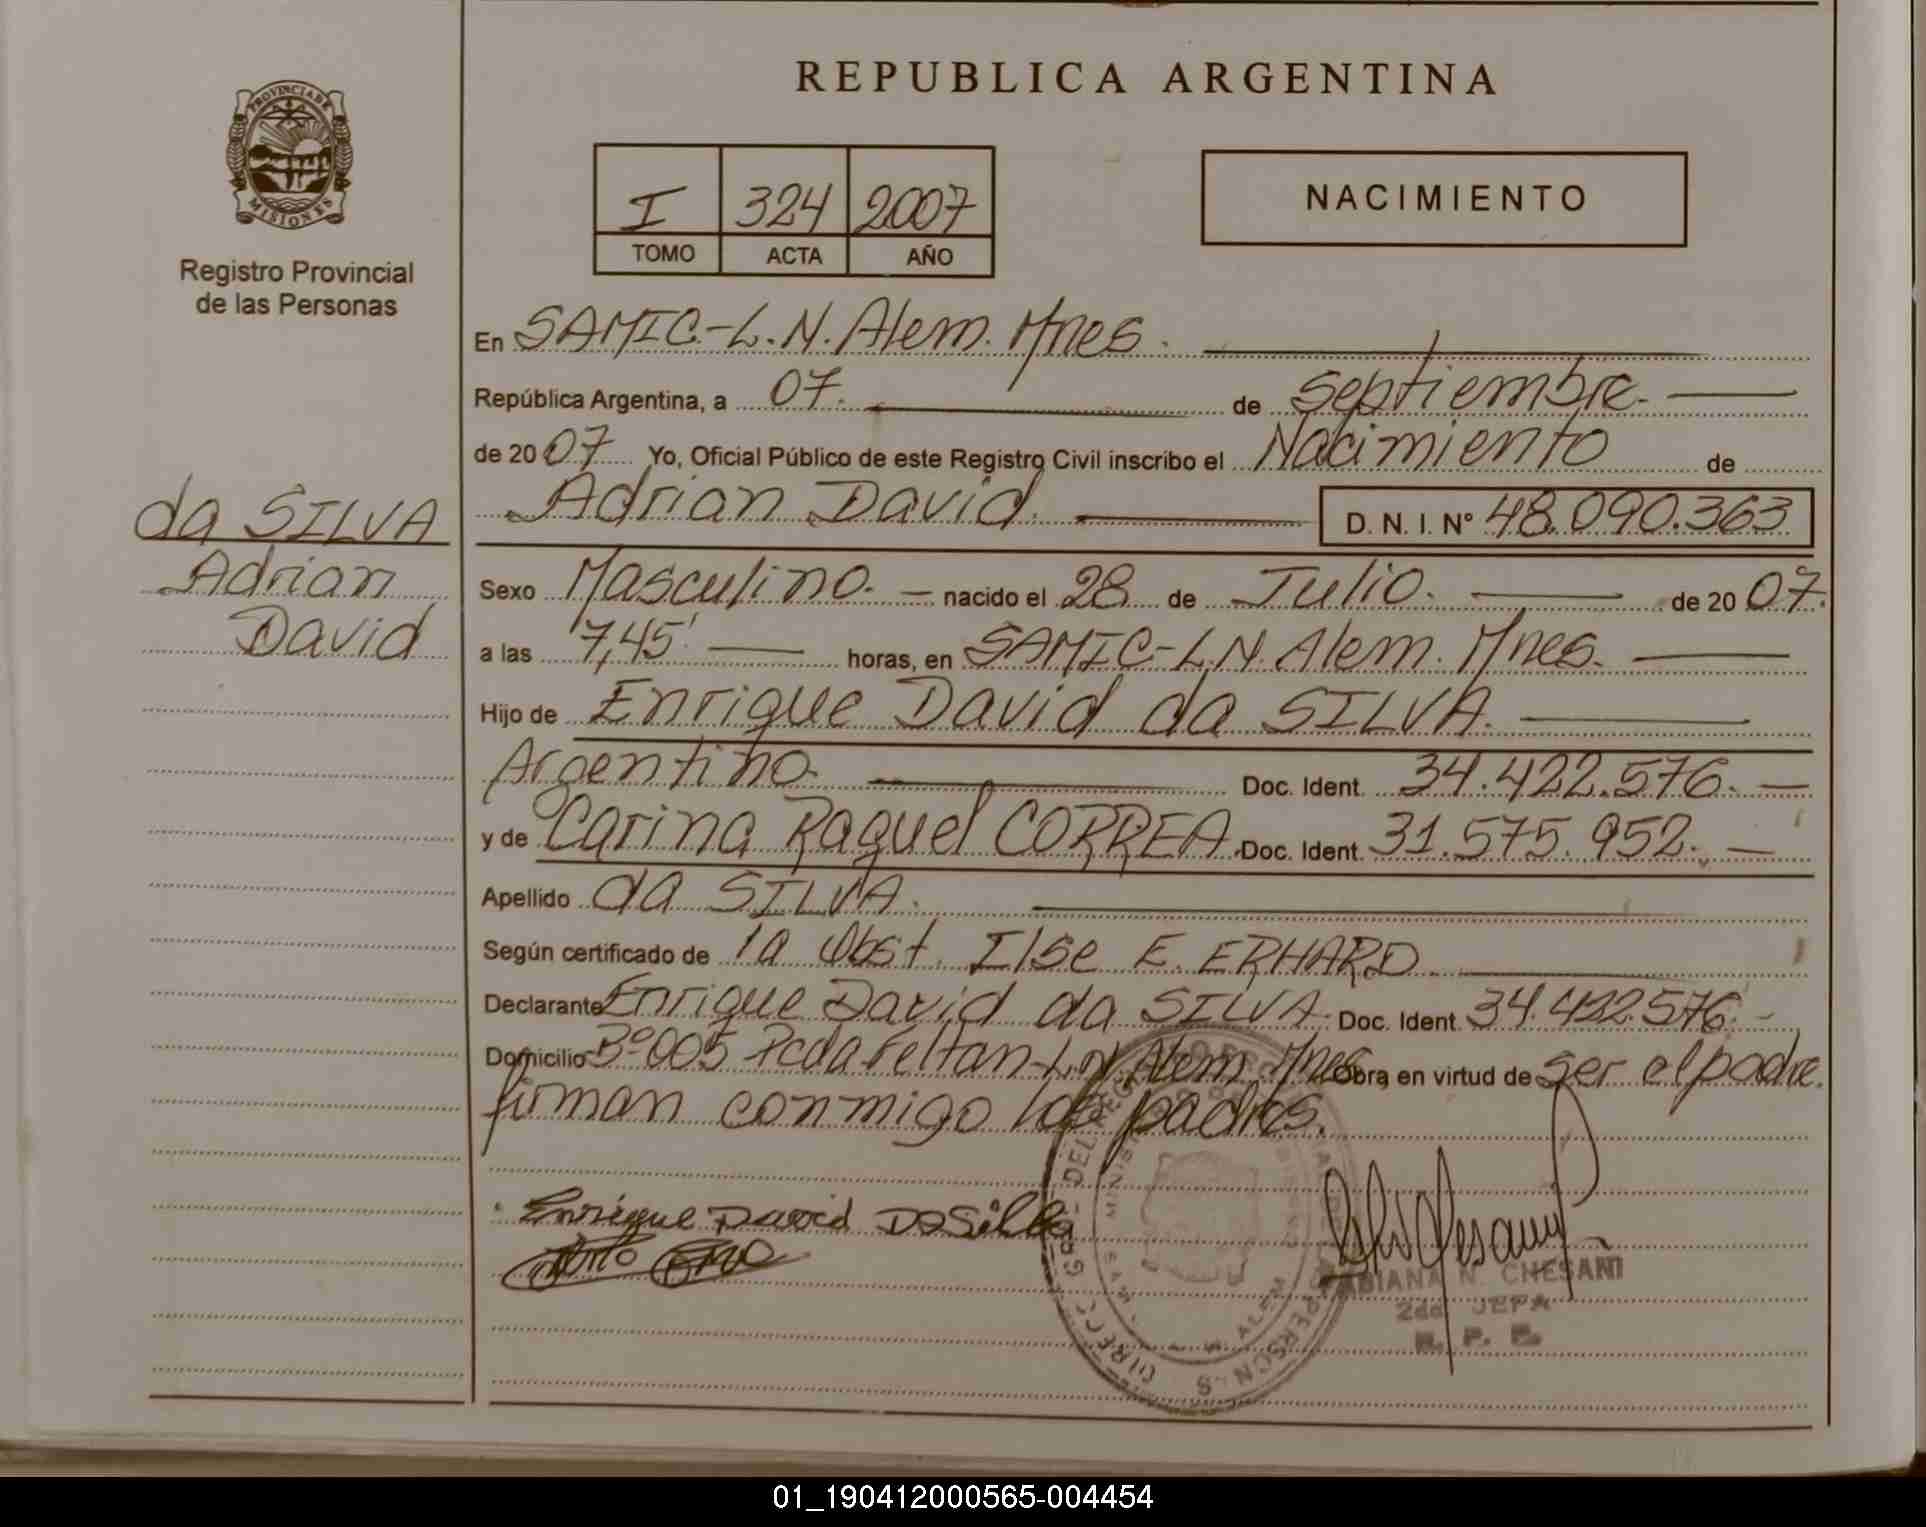 PROVINCIA DE
MISIONES
Registro Provincial
de las Personas
da SILVA
Adrian
David
REPUBLICA ARGENTINA
I 324 2007
TOMO ACTA AÑO
NACIMIENTO
En SAMIC.-L.N.Alem. Mnes.
República Argentina, a 07. de septiembre.
de 2007 Yo, Oficial Público de este Registro Civil inscribo el Nacimiento de
Adrian David. D. N. I. N° 48.090.363
Sexo Masculino. nacido el 28 de Julio. de 2007.
a las 7,45' horas, en SAMIC-L.N. Alem. Mnes.
Hijo de Enrique David da SILVA.
Argentino. Doc. Ident. 34.422.576.
y de Carina Raquel CORREA. Doc. Ident. 31.575.952.
Apellido da SILVA.
Según certificado de la Obst. Ilse E. ERHARD
Declarante Enrique David da SILVA. Doc. Ident. 34.422.576.
Domicilio B°005 Pcda Feltan-L.N. Alem Mnes Obra en virtud de ser el padre.
firman conmigo los padres.
Enrique David DaSilva
FABIANA N. CHESANI
2da. JEFA
R. P. P.
01_190412000565-004454